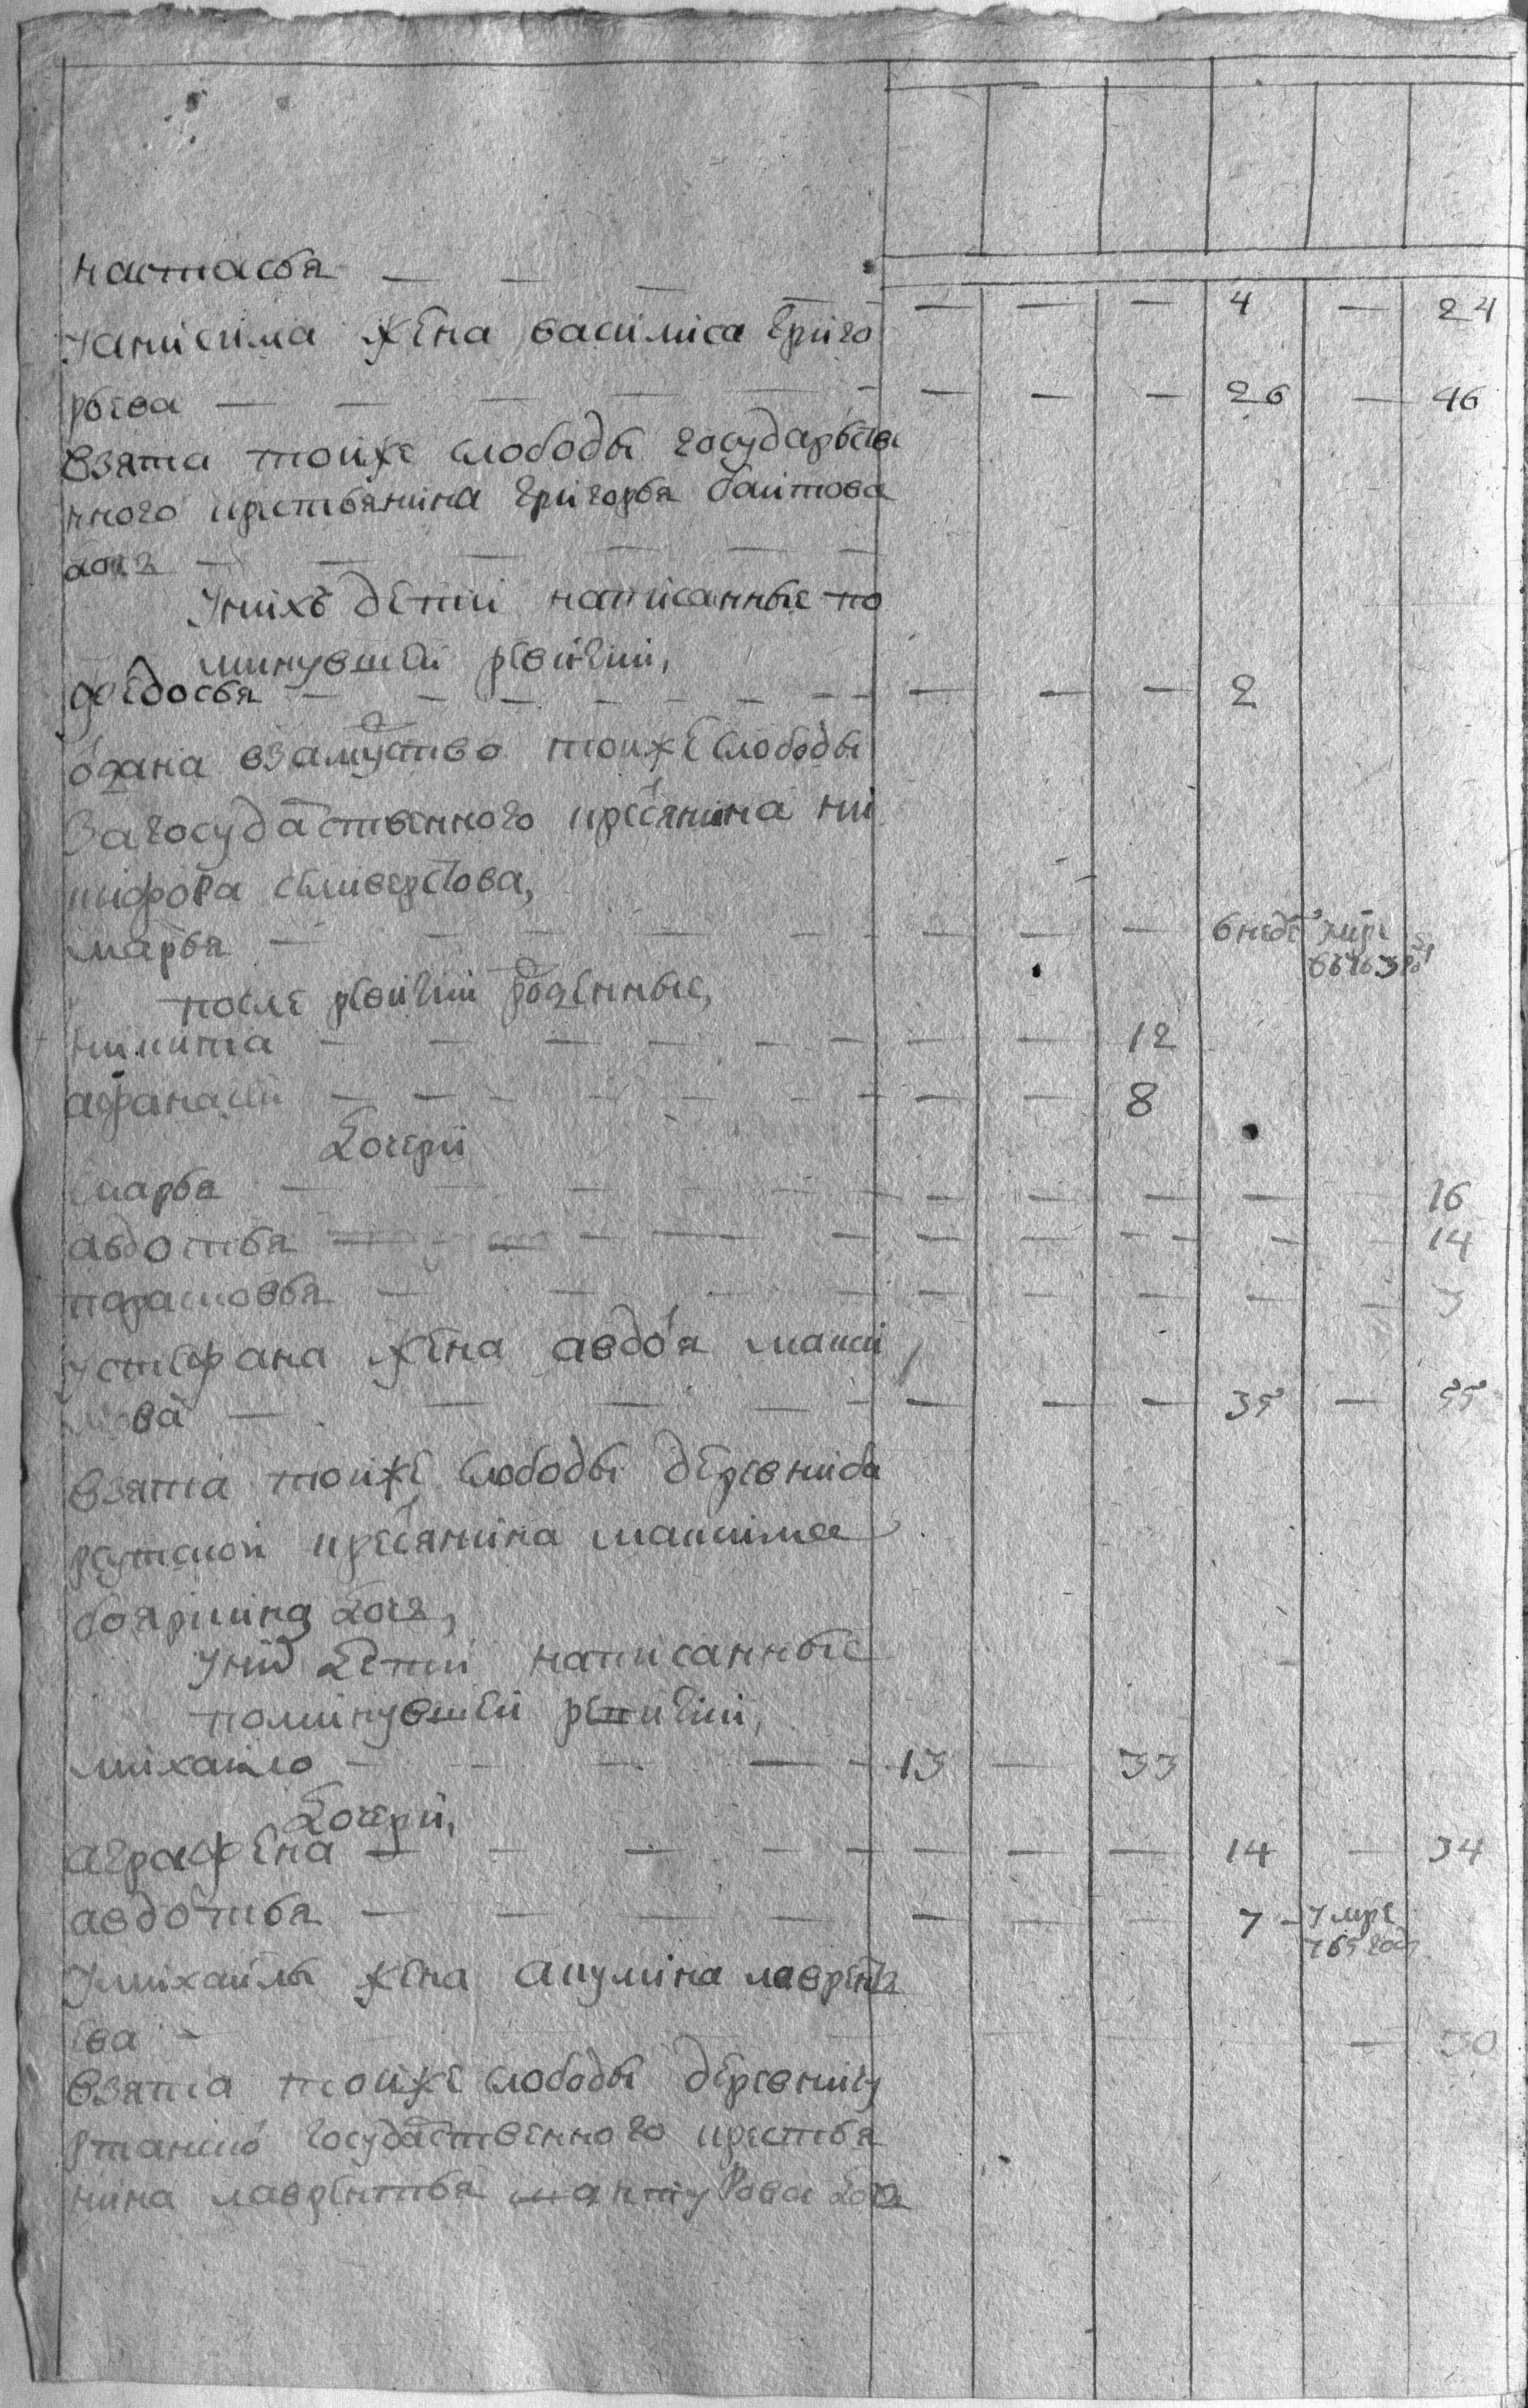 настасья — — — — — — — 4 — 24
уанисима жена василиса григо
рьева — — — — — — — — 26 — 46
взята тойже слободы государьстве
нного крестьянина григорья баитова
доч — — — — — —
Унихъ дети написанные по
минувшей ревизии,
федосья — — — — — — — — — — 2
одана взамуство тойже слободы
Загосударственного кресьянина ни
кифора селиверстова,
марья — — — — — — — — 6 неде умре
в 763 год
после ревизии рожденные,
никита — — — — — — — — 12
афанасей — — — — — — — — 8
Дочери
марья — — — — — — — — — 16
авдотья — — — — — — — — — 14
парасковья — — — — — — — — — 3
устефана жена авдотья макси
мова — — — — — — — — 35 — 55
взята тойже слободы деревни ба
рутской кресьянина максима
бояркина доч,
Уних Дети написанные
поминувшей ревизии,
михаило — — — — — 13 — 33
Дочери,
аграфена — — — — — — — — 14 — 34
авдотья — — — — — — — 7 — умре
765 году
Умихаилы жена акулина лаврентье
ева — — 30
взята тойже слободы деревни
государственного крестья
нина лаврентья доч